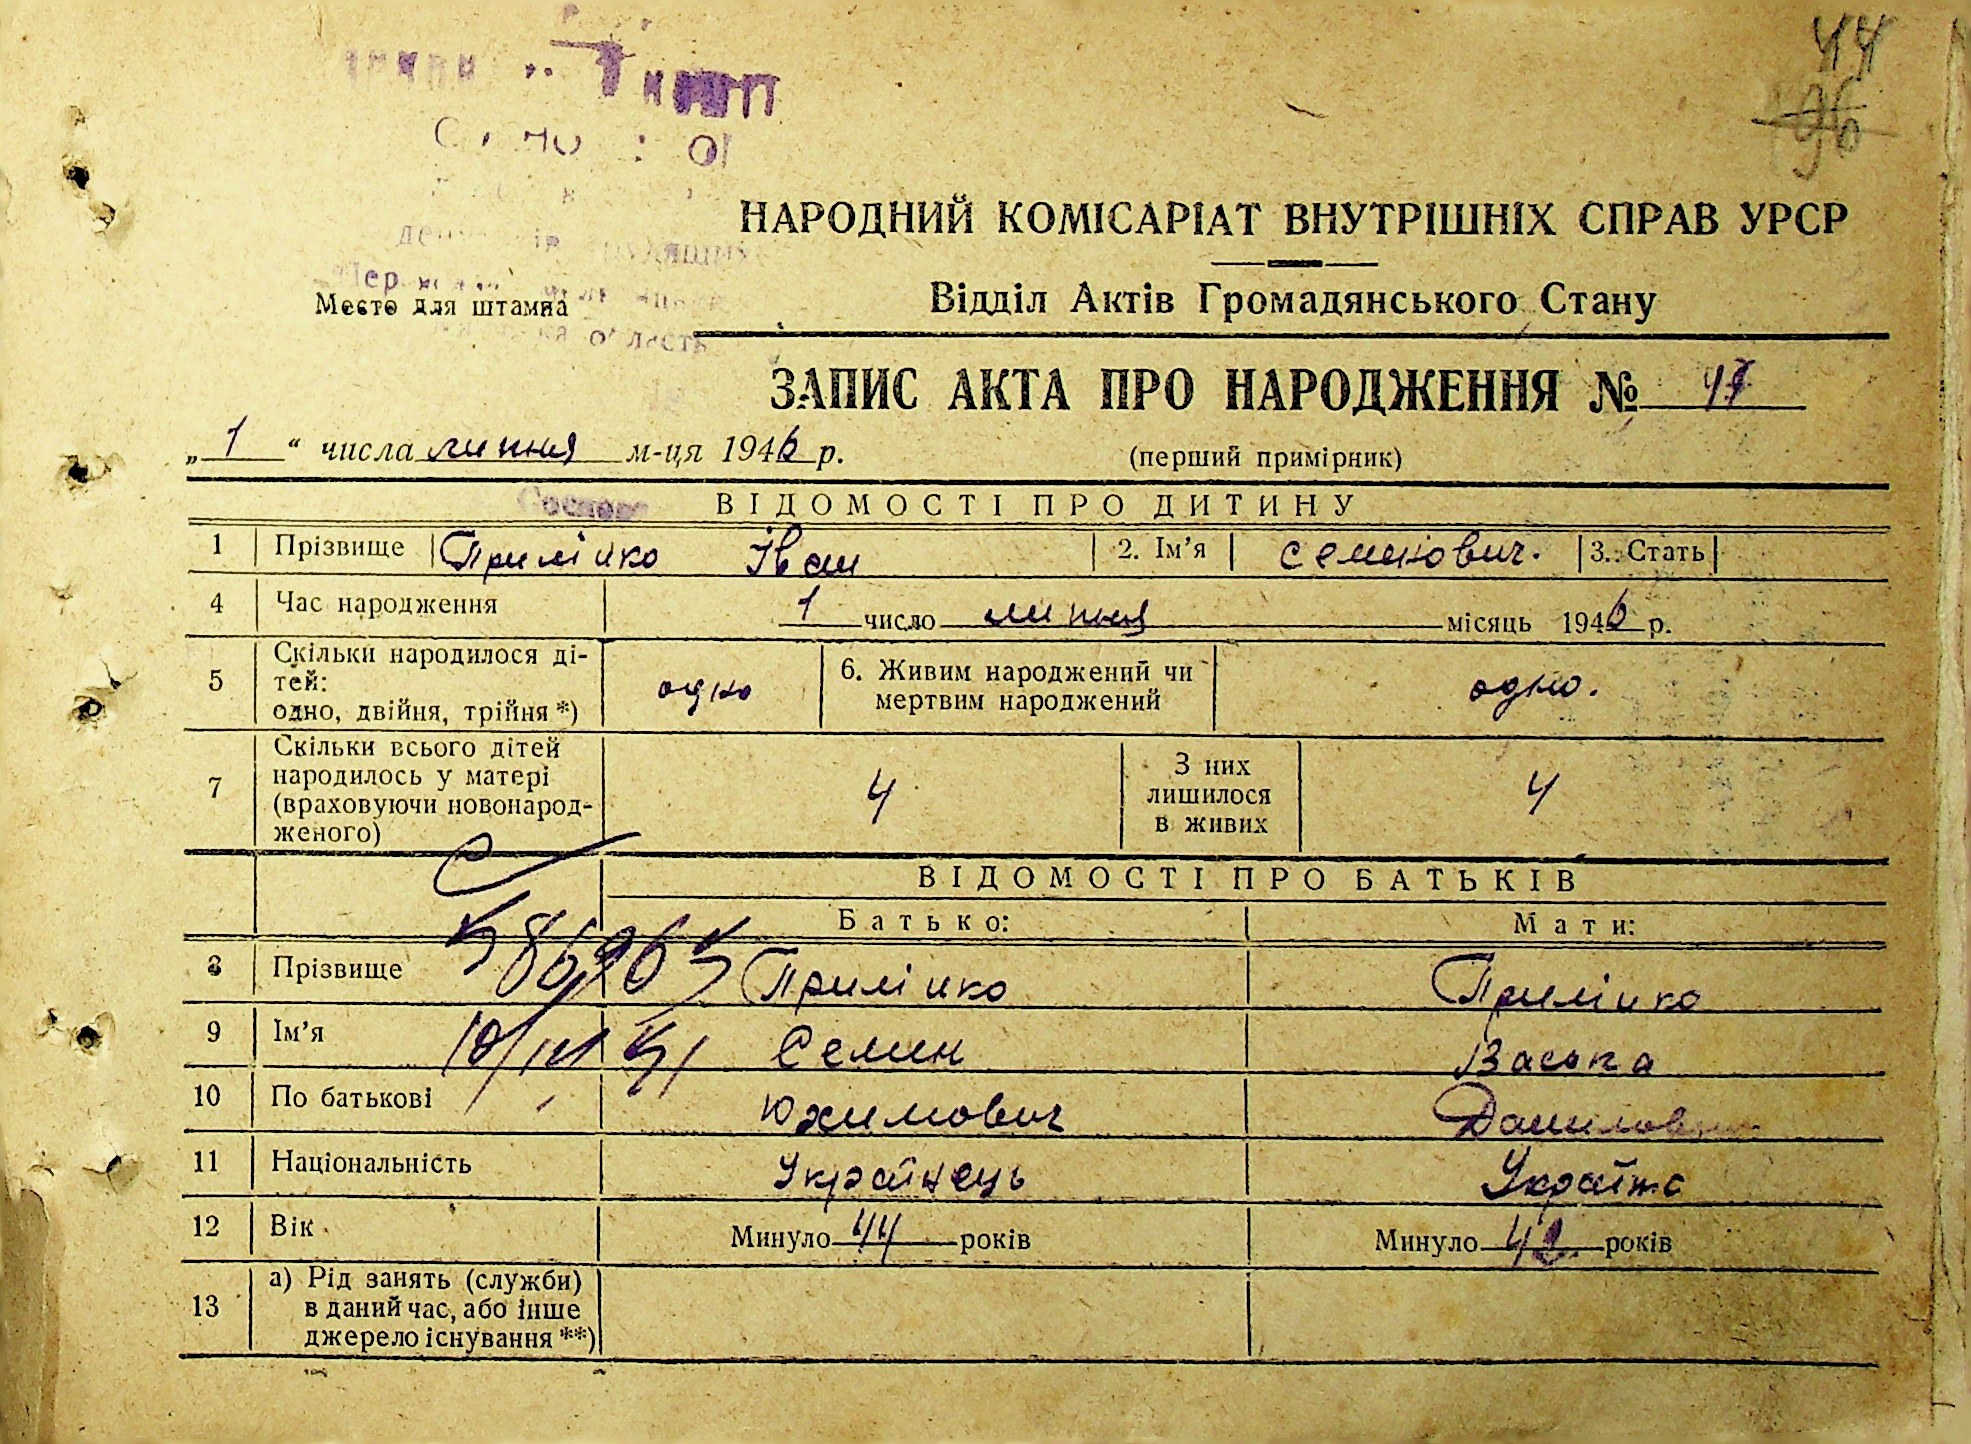 44
96
НАРОДНИЙ КОМІСАРІАТ ВНУТРІШНІХ СПРАВ УРСР
Место для штампа
Відділ Актів Громадянського Стану
ЗАПИС АКТА ПРО НАРОДЖЕННЯ №
„1“ числа липня м-ця 1946 р.
(перший примірник)
ВІДОМОСТІ ПРО ДИТИНУ
1 Прізвище Приліпко Іван 2. Ім’я Семенович. 3. Стать
4 Час народження 1 число липня місяць 1946 р.
5 Скільки народилося ді-
тей:
одно, двійня, трійня *) одно 6. Живим народжений чи
мертвим народжений одно.
7 Скільки всього дітей
народилось у матері
(враховуючи новонарод-
женого) 4 З них
лишилося
в живих 4
ВІДОМОСТІ ПРО БАТЬКІВ
Батько: Мати:
8 Прізвище Приліпко Приліпко
9 Ім’я Семен Васька
10 По батькові Юхимович Данилов
11 Національність Українець Українка
12 Вік Минуло 44 років Минуло 42 років
13 а) Рід занять (служби)
в даний час, або інше
джерело існування **)